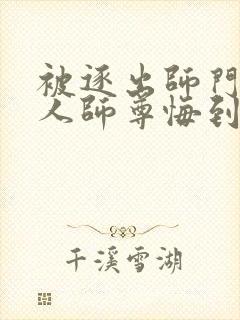 被逐出師門
人師尊悔到
千溪雪湖